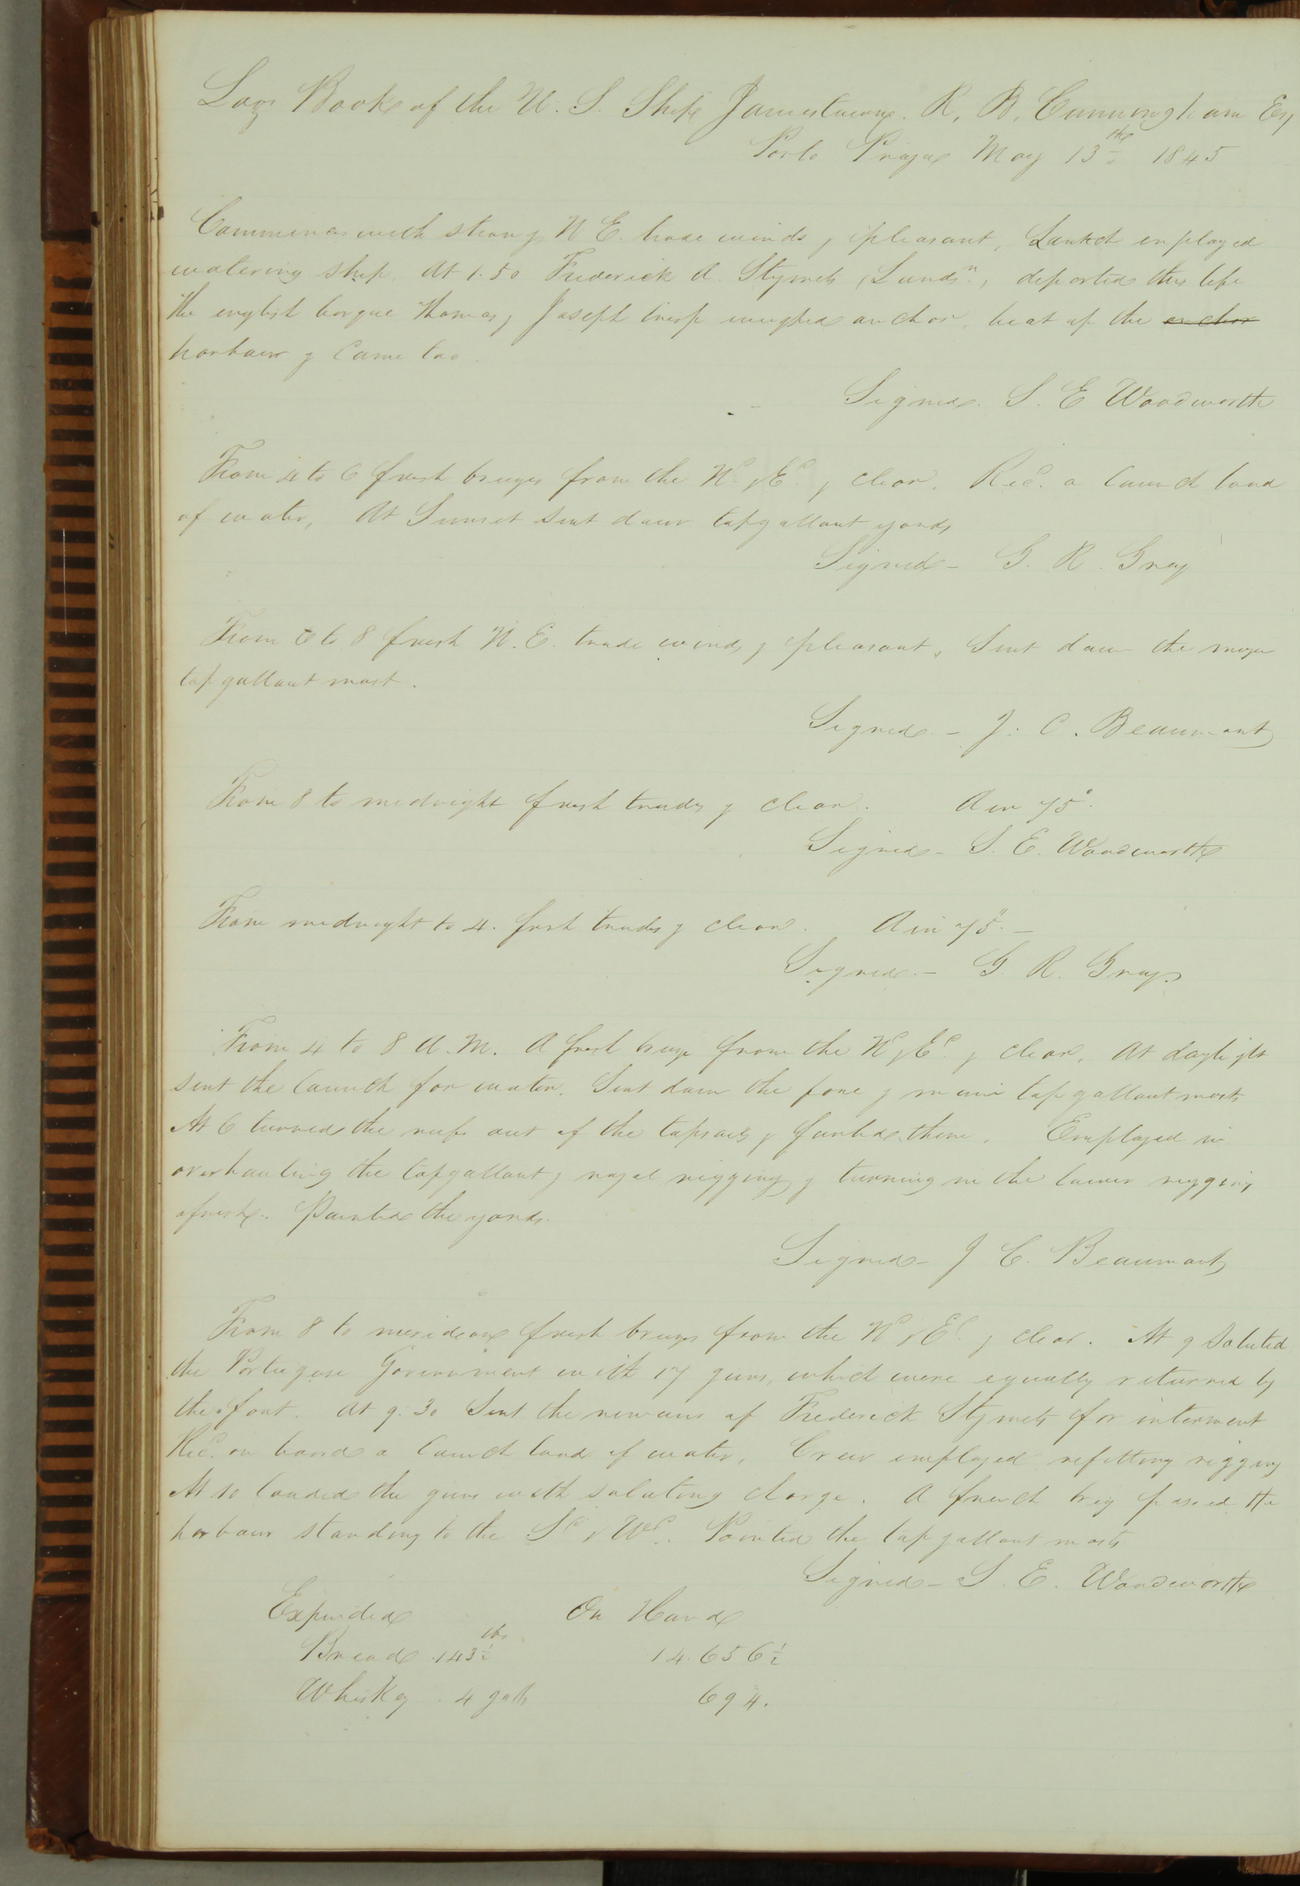 Log Book of the U. S. Ship Jamestown. R. B. Cunningham Esq
Porto Praya May 13th 1845
Commences with strong N E. trade winds & pleasant, Launch employed
watering ship. At 1.50 Frederick A. Stymets (Landsn), departed this life
the english barque Thomas & Joseph Crisp weighed anchor, beat up the anchor
harbour & Came too.
Signed. S. E Woodworth
From 4 to 6 fresh breezes from the Nd & Ed & clear. Recd. a launch load
of water, At Sunset sent down topgallant yards
Signed - G. R. Gray
From 6 to 8 fresh N. E. trade winds & pleasant, Sent down the mizen
top gallant mast.
Signed - J. C. Beaumont
From 8 to midnight fresh trades & clear. Air 75°.
Signed - S. E. Woodworth
From midnight to 4. fresh trades & clear. Air 75°. -
Signed - G R. Gray
From 4 to 8 A. M. A fresh breeze from the Nd & Ed. & clear. At daylight
sent the launch for water. Sent down the fore & main top gallant masts
At 6 turned the reefs out of the topsails & furled them. Employed in
overhauling the topgallant & royal rigging & turning in the lower rigging
afresh. Painted the yards.
Signed - J C. Beaumont
From 8 to meridian fresh breezes from the Nd & Ed. & clear. At 9 Saluted
the Portuguese Government with 17 guns, which were equally returned by
the fort. At 9.30 Sent the remains of Frederick Stymets for interment
Recd. on board a launch load of water. Crew employed refitting rigging
At 10 loaded the guns with saluting charge. A french brig passed the
harbour standing to the Sd & Wd. Painted the topgallant masts
Signed - S. E. Woodworth
Expended On Hand
Bread 143½ lbs 14.656½
Whiskey 4 galls 694.